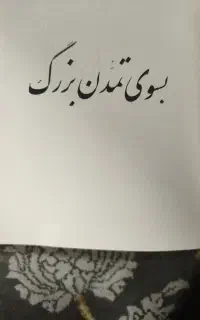 بسوی تمدّن بزرگ